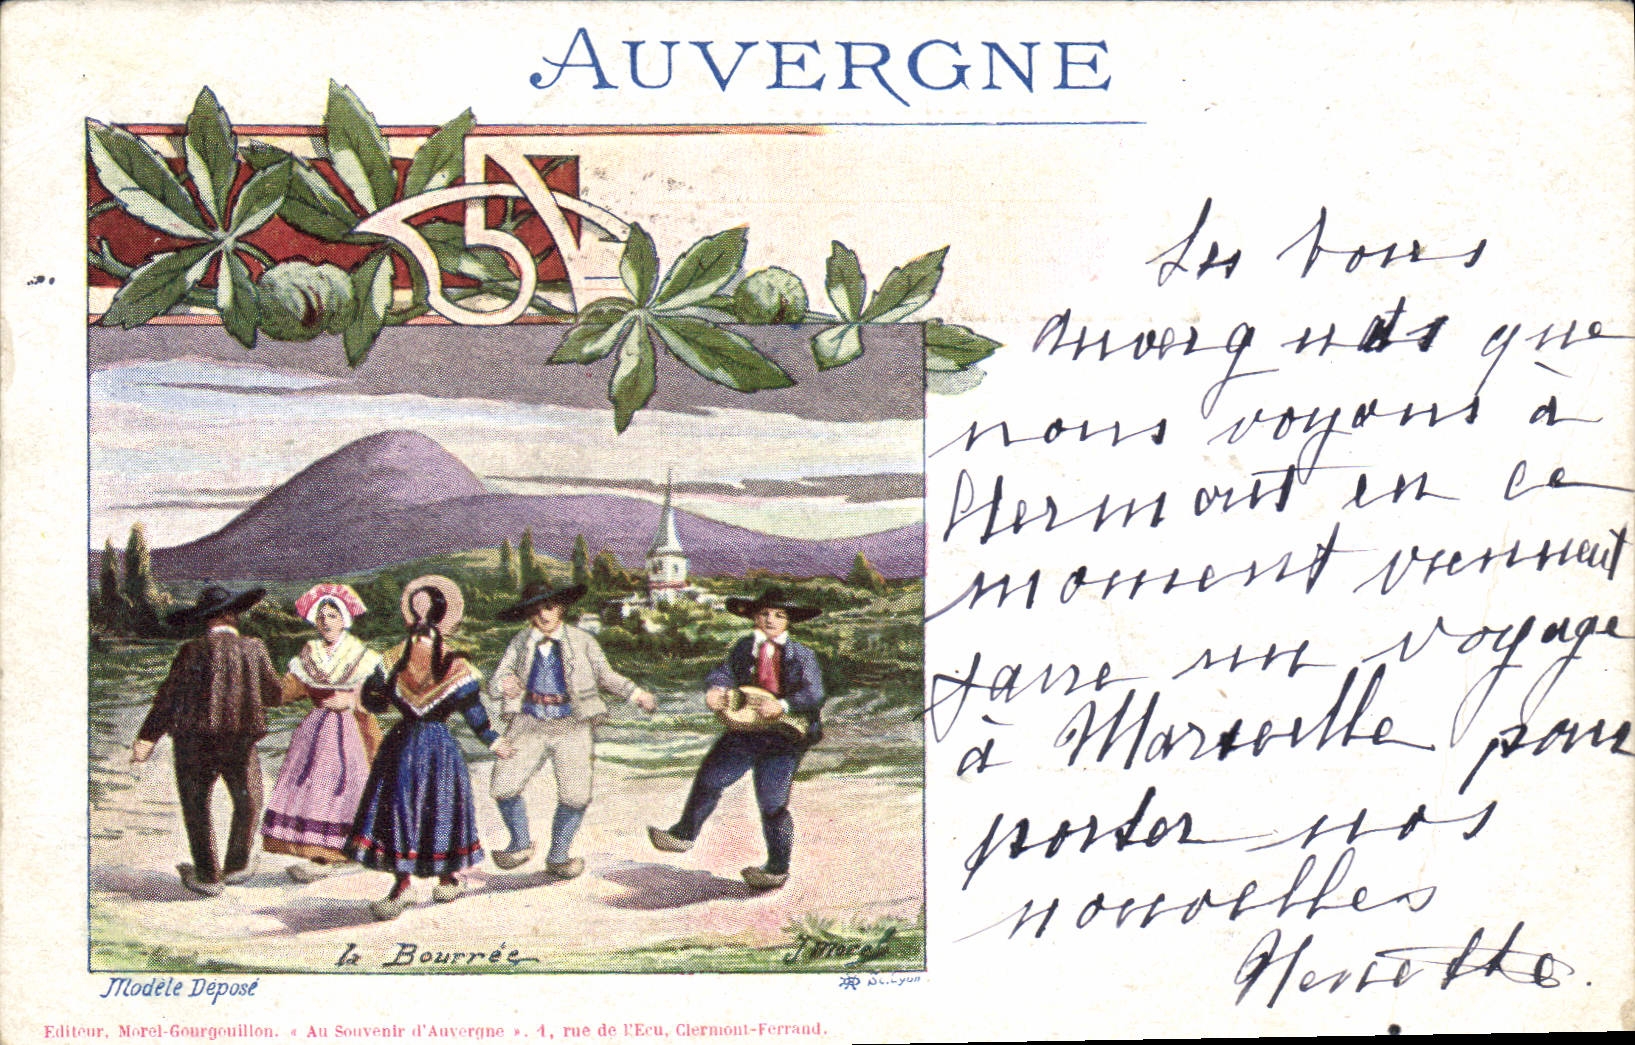 AUVERGNE
Les bons
Auvergnats que
nous voyons à
Clermont en ce
moment viennent
faire un voyage
à Marseille pour
porter nos
nouvelles
Henriette.
la Bourrée
J. Morel
Modèle Déposé
Sc. Lyon
Editeur, Morel-Gourgouillon. « Au Souvenir d'Auvergne ». 1, rue de l'Ecu, Clermont-Ferrand.